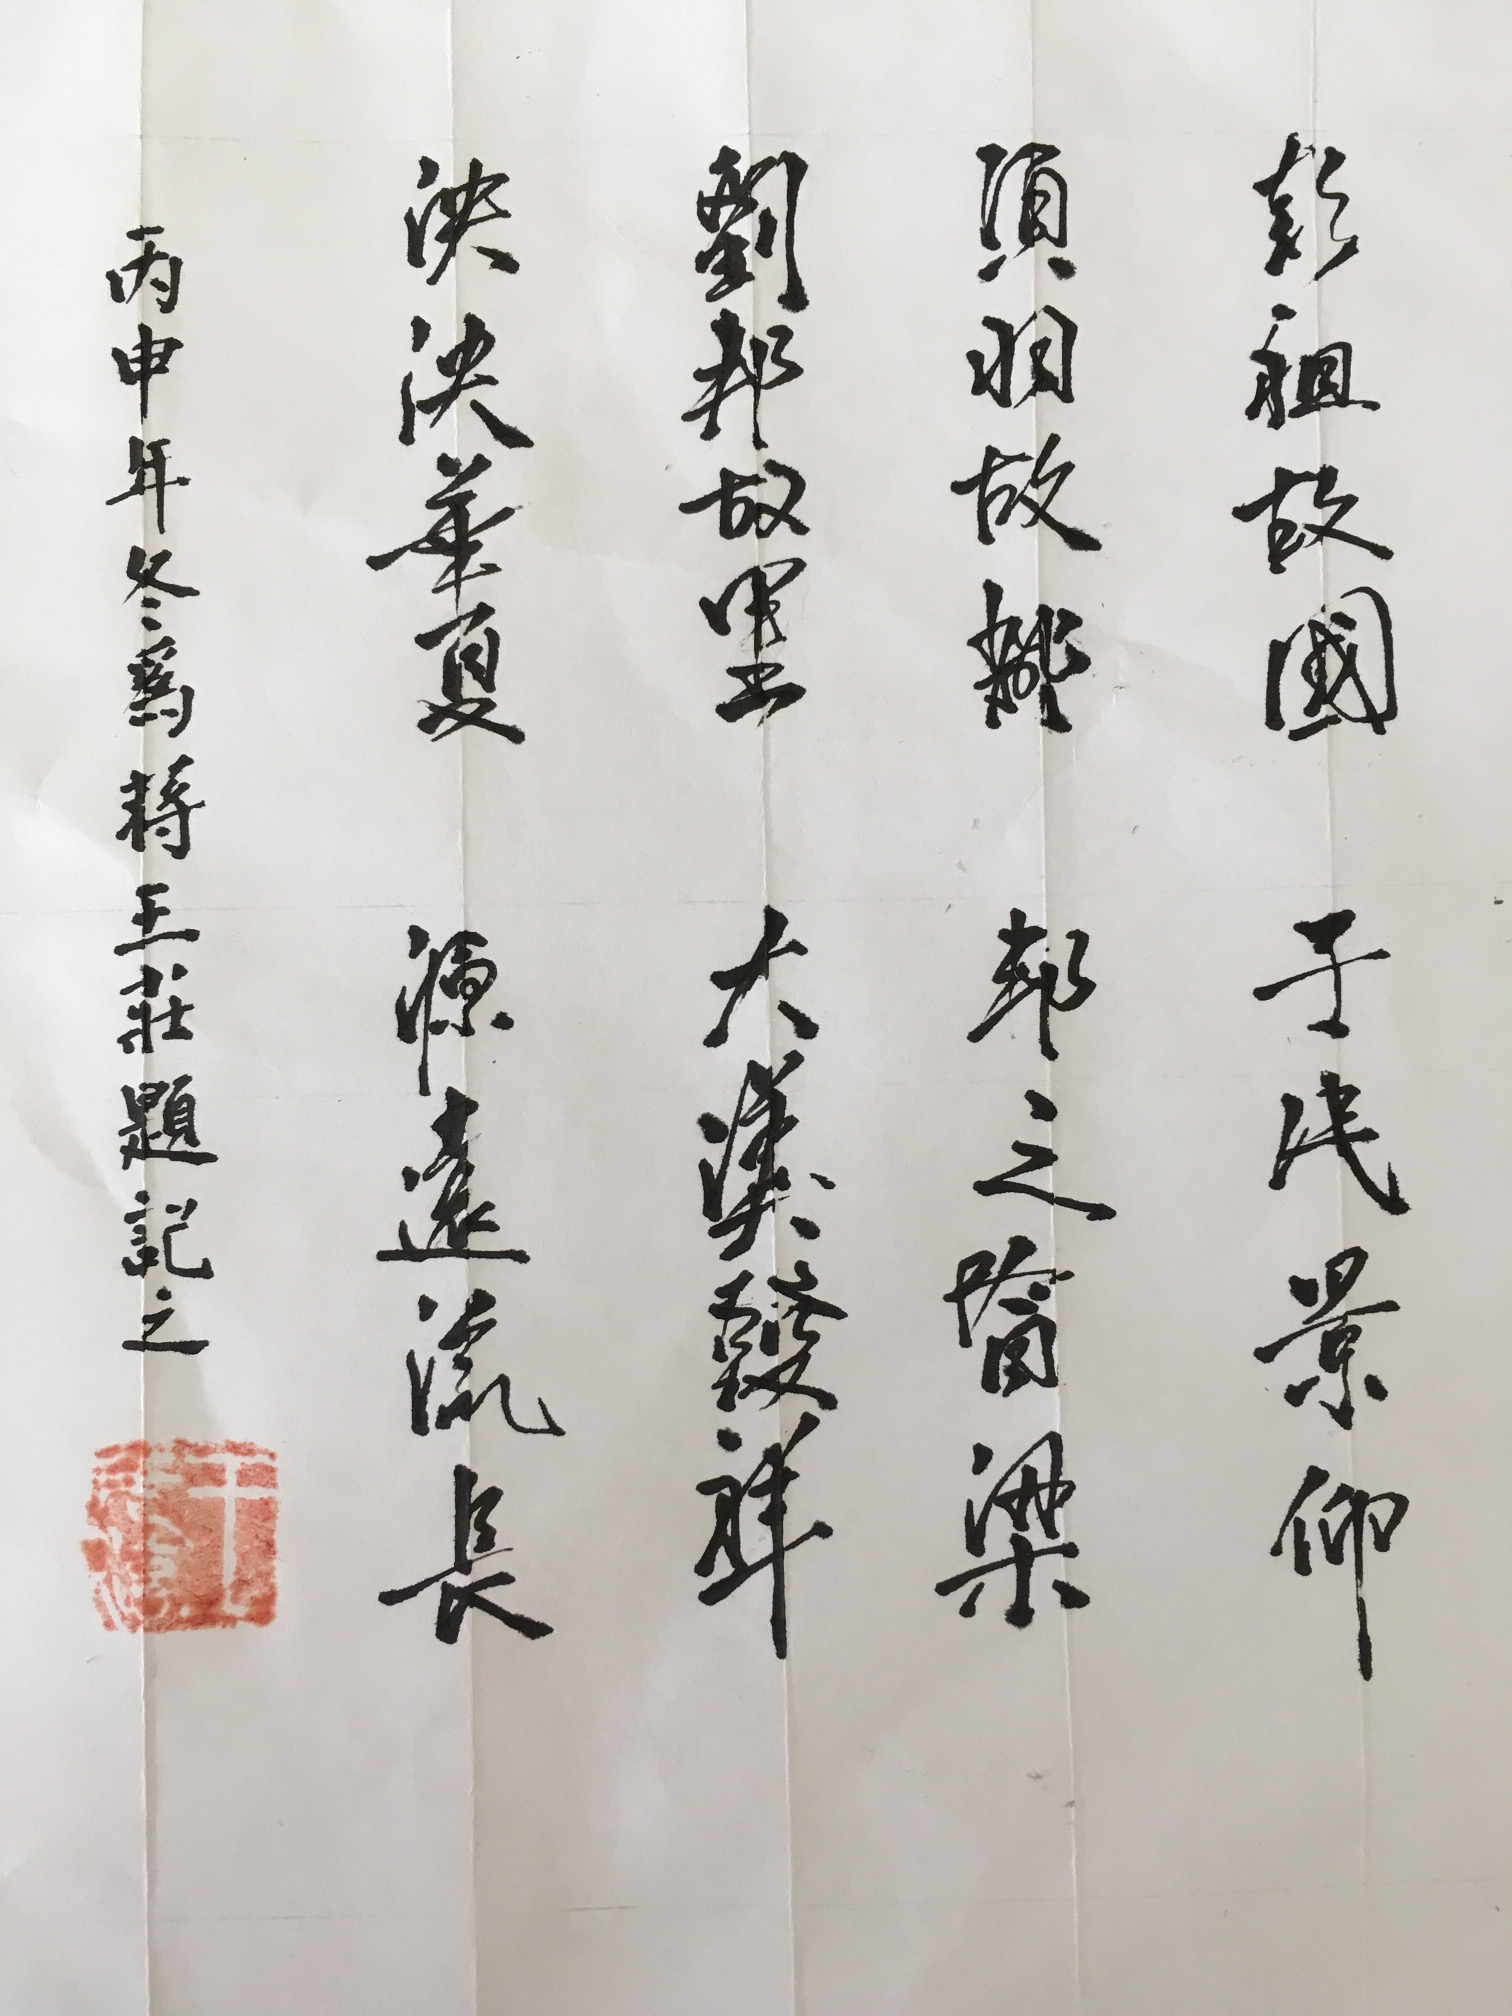 彭祖故國 子民景仰
項羽故都 邦之脊梁
劉邦故里 大漢發祥
泱泱華夏 源遠流長
丙申年冬爲蔣王莊題記之